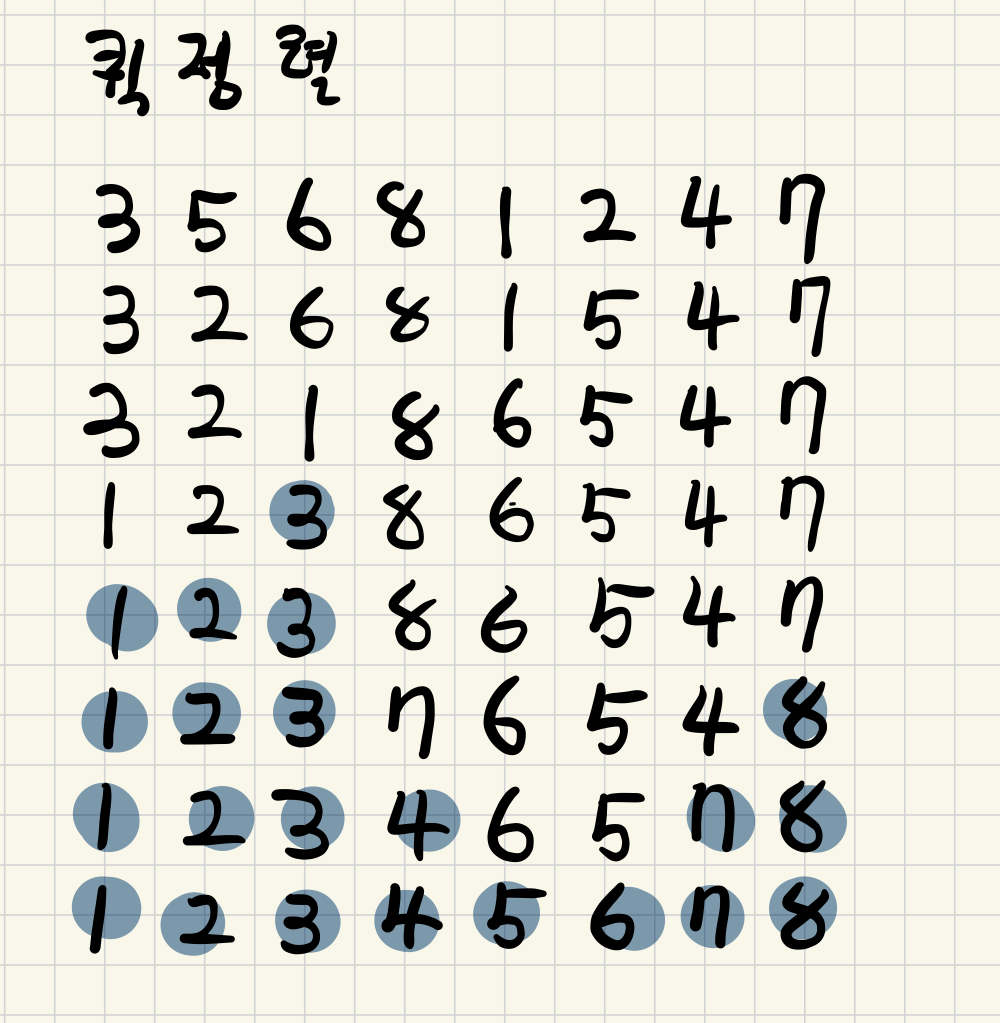 퀵 정렬
3 5 6 8 1 2 4 7
3 2 6 8 1 5 4 7
3 2 1 8 6 5 4 7
1 2 3 8 6 5 4 7
1 2 3 8 6 5 4 7
1 2 3 7 6 5 4 8
1 2 3 4 6 5 7 8
1 2 3 4 5 6 7 8